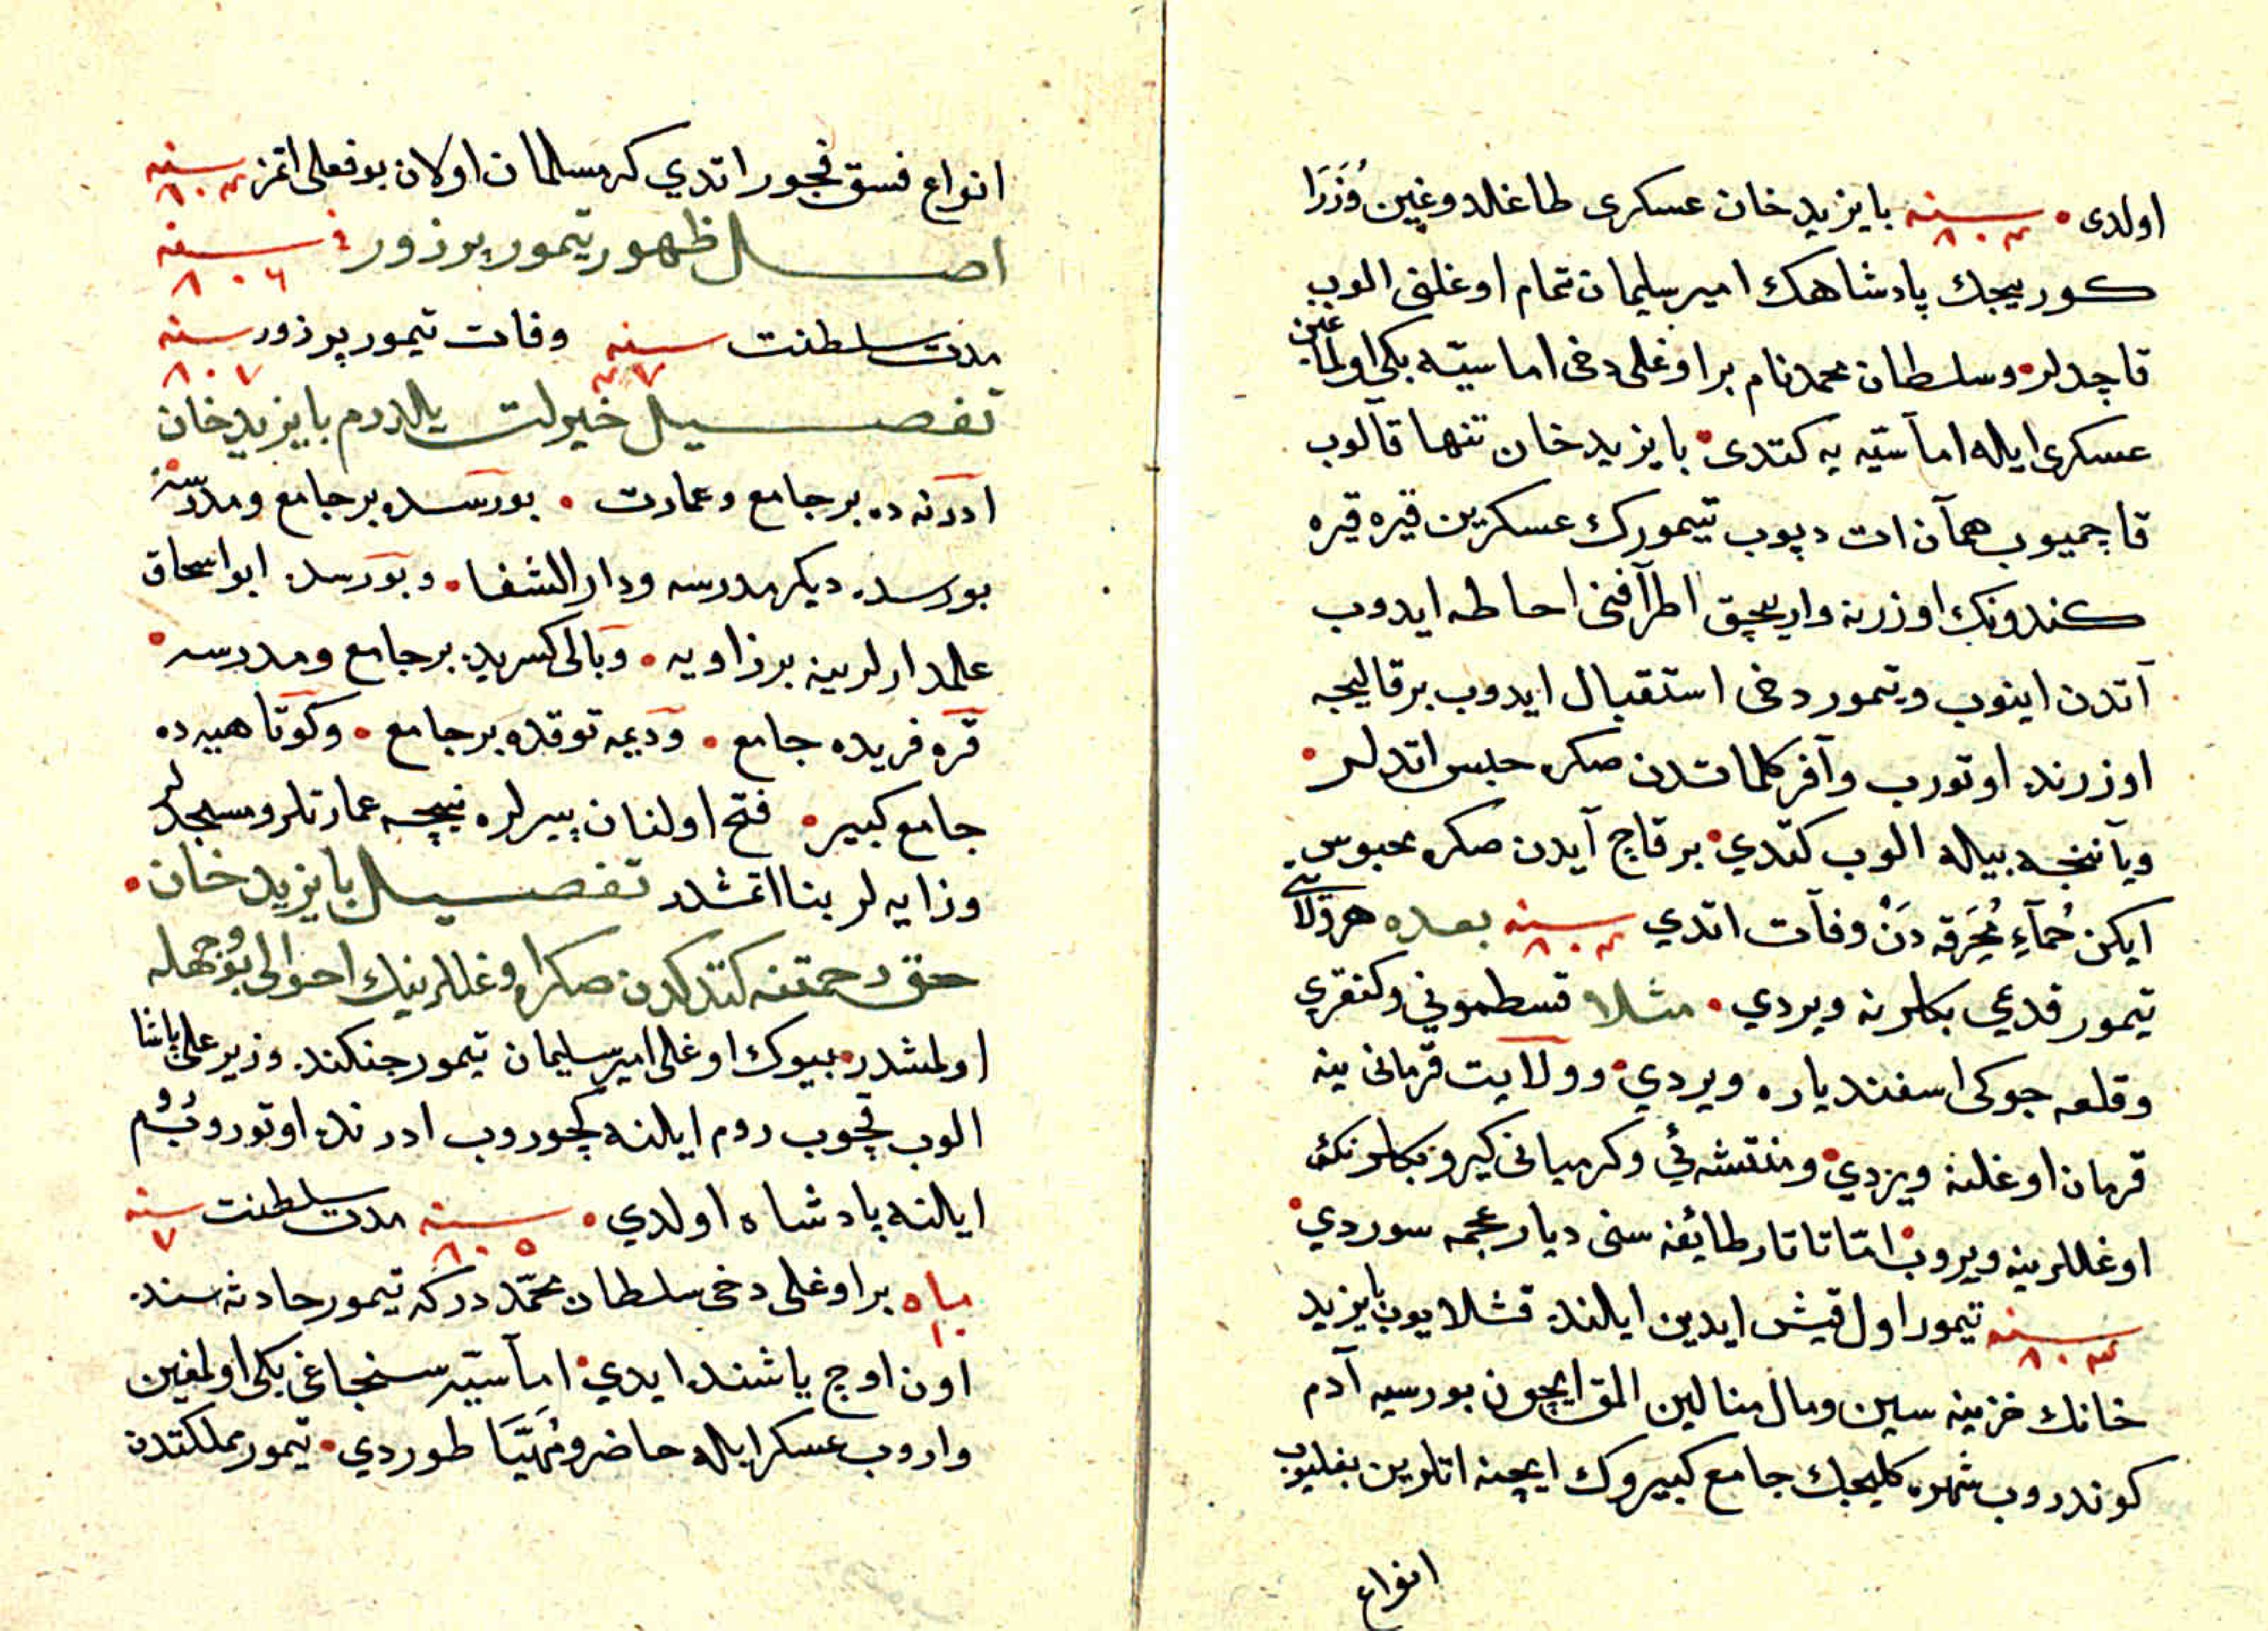 اولدی • سنه ٨٠٤ بایزید خان عسکری طاغلدوغین وُزَرَا
کوریجك پادشاهك امیر سلیمان تمام اوغلنی الوب
قاچدلر • وسلطان محمد نام بر اوغلی دخی اماسیّه بکی اولماغین
عسکری ایله اماسیّه یه کتدی • بایزید خان تنها قالوب
قاچمیوب همان ات دپوب تیمورك عسکرین قیره قیره
کندونك اوزرنه واریجق اطرافنی احاطه ایدوب
آتدن اینوب وتیمور دخی استقبال ایدوب بر قالیجه
اوزرنده اوتورب وآفر کلماتدن صکره حبس اتدلر •
ویاننجه بیله الوب کتدی • بر قاچ آیدن صکره محبوس
ایکن حُمآءِ مُحَرَقه دَنْ وفات اتدی سنه ٨٠٤ بعده هر ولایتی
تیمور قدیمی بکلرنه ویردی • مثلا قسطمونی وکنقری
وقلعه جوکی اسفندیاره ویردی • وولایت قرمانی ینه
قرمان اوغلنه ویردی • ومنتشه ئی وکرمیانی کیرو بکلرنك
اوغللرینه ویروب • امّا تاتار طائفه سنی دیار عجمه سوردی •
سنه ٨٠٤ تیمور اول قیش ایدین ایلنده قشلایوب بایزید
خانك خزینه سین ومال منالین المق ایچون بورسیه آدم
کوندروب شهره کلیجك جامع کبیروك ایچنه اتلرین بغلیوب
انواع
انواع فسق فجور اتدی که مسلمان اولان بو فعلی اتمز سنه ٨٠٤
اصل ظهور تیمور پر زور فی سنه ٨٠٦
مدت سلطنت سنه ٤٧ وفات تیمور پر زور سنه ٨٠٧
تفصیل خیرات یلدرم بایزید خان
ادرنه ده بر جامع وعمارت • بورسده بر جامع ومدرسه •
بورسده دیکر مدرسه ودار الشفا • وبورسده ابو اسحاق
علمدارلرینه بر زاویه • وبالی کسریده بر جامع ومدرسه •
قره فریده جامع • ودیمه توقده بر جامع • وکوتاهیه ده
جامع کبیر • فتح اولنان ییرلره نیچه عمارتلر ومسجدلر
وزایه لر بنا اتمشدر تفصیل بایزید خان •
حق رحمتنه کتدکدن صکره اوغللرینك احوالی بو وجهله
اولمشدر • بیوك اوغلی امیر سلیمان تیمور جنکنده وزیر علی پاشا
الوب قچوب روم ایلنه کچوروب ادرنده اوتوروب روم
ایلنه پادشاه اولدی • سنه ٨٠٥ مدت سلطنت سنه ٧
ماه ١٠ بر اوغلی دخی سلطان محمّد درکه تیمور حادثه سنده
اون اوچ یاشنده ایدی • اماسیّه سنجاغی بکی اولمغین
واروب عسکر ایله حاضر ومُهَیَّا طوردی • تیمور مملکتدن